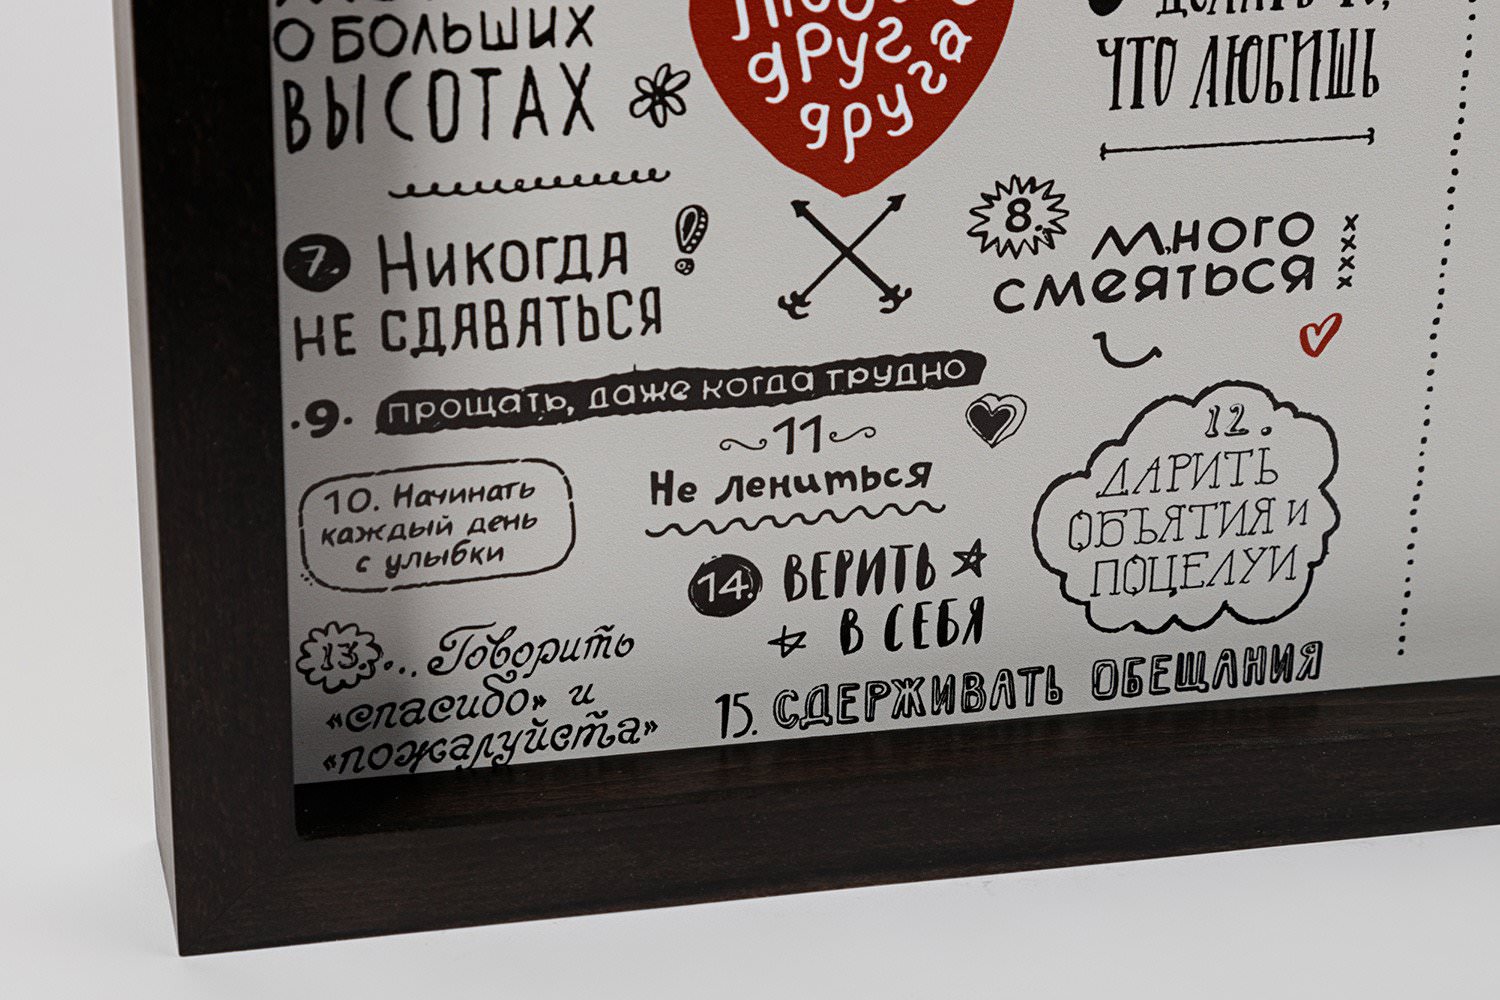 О БОЛЬШИХ
ВЫСОТАХ
друг
друга
ЧТО ЛЮБИШЬ
7. Никогда
не сдаваться
8. много
смеяться
.9. прощать, даже когда трудно
10. Начинать
каждый день
с улыбки
11
Не лениться
12.
ДАРИТЬ
ОБЪЯТИЯ и
ПОЦЕЛУИ
13... Говорить
«спасибо» и
«пожалуйста»
14. ВЕРИТЬ
В СЕБЯ
15. СДЕРЖИВАТЬ ОБЕЩАНИЯ